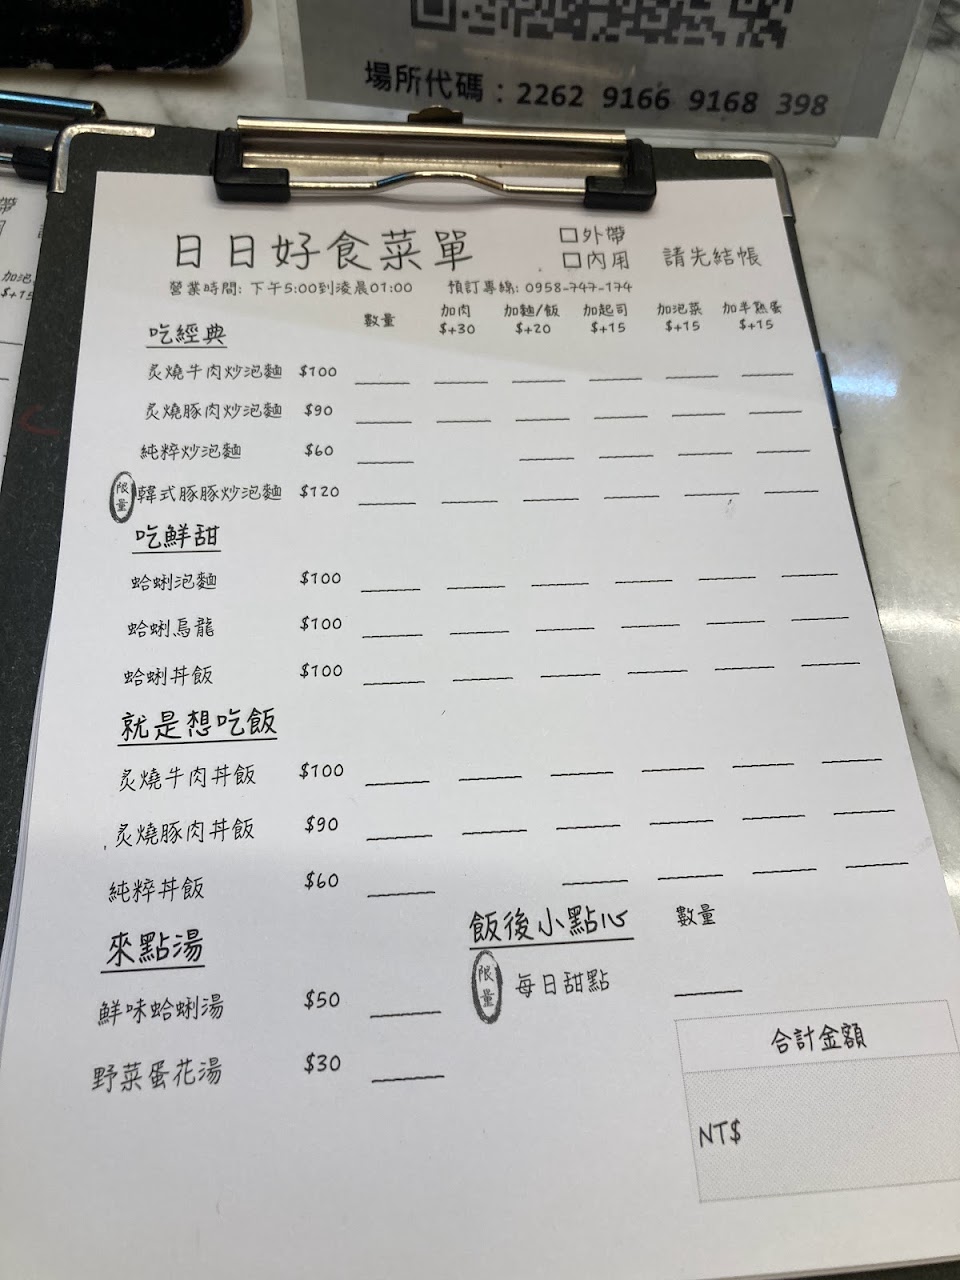 場所代碼：2262 9166 9168 398
日日好食菜單 □外帶 □內用 請先結帳
營業時間: 下午5:00到淩晨01:00 預訂專線: 0958-747-174
數量 加肉 $+30 加麵/飯 $+20 加起司 $+15 加泡菜 $+15 加半熟蛋 $+15
吃經典
炙燒牛肉炒泡麵 $100
炙燒豚肉炒泡麵 $90
純粹炒泡麵 $60
限量 韓式豚豚炒泡麵 $120
吃鮮甜
蛤蜊泡麵 $100
蛤蜊烏龍 $100
蛤蜊丼飯 $100
就是想吃飯
炙燒牛肉丼飯 $100
炙燒豚肉丼飯 $90
純粹丼飯 $60
來點湯
鮮味蛤蜊湯 $50
野菜蛋花湯 $30
飯後小點心 數量
限量 每日甜點
合計金額
NT$
加泡
$+15